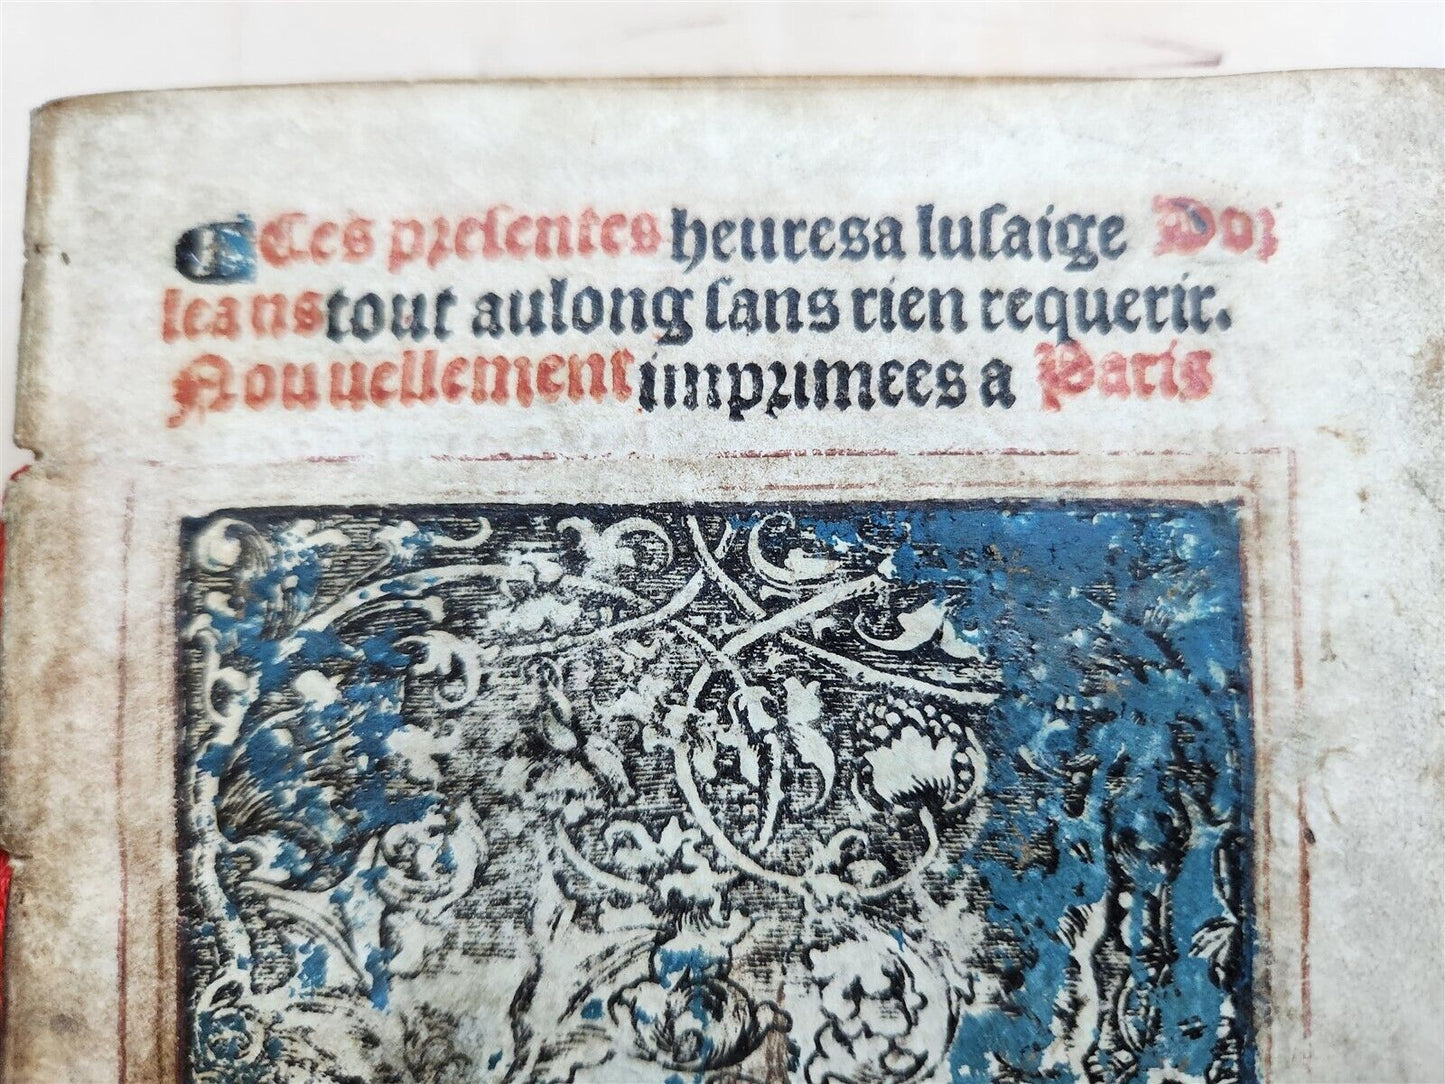 Ces preſentes heuresa luſaige Dor
leans tout aulong ſans rien requerir.
Nouuellement imprimees a Paris